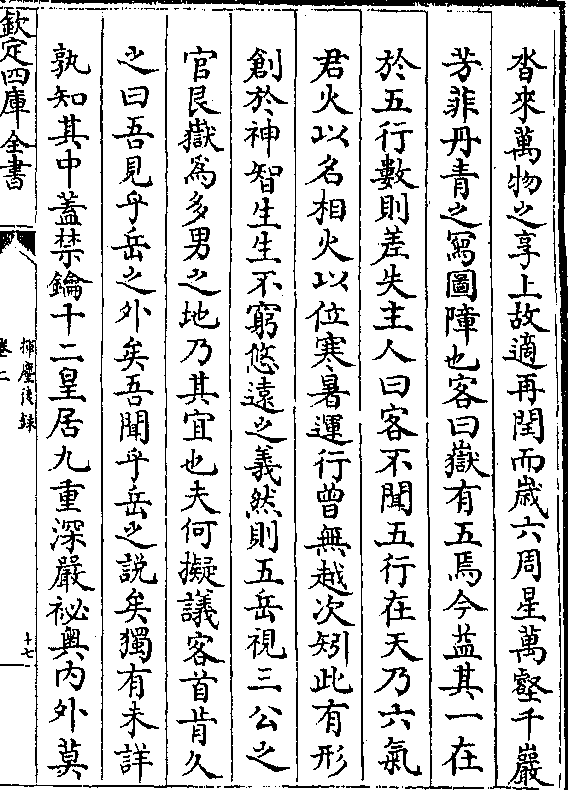 沓來萬物之享上故適再閏而歲六周星萬壑千巖
芳菲丹青之寫圖障也客曰嶽有五焉今益其一在
於五行數則差失主人曰客不聞五行在天乃六氣
君火以名相火以位寒暑運行曾無越次矧此有形
創於神智生生不窮悠遠之義然則五岳視三公之
官艮嶽爲多男之地乃其宜也夫何擬議客首肯久
之曰吾見乎岳之外矣吾聞乎岳之說矣獨有未詳
孰知其中蓋禁鑰十二皇居九重深嚴祕奥内外莫
欽定四庫全書
揮麈後錄
卷二
十七